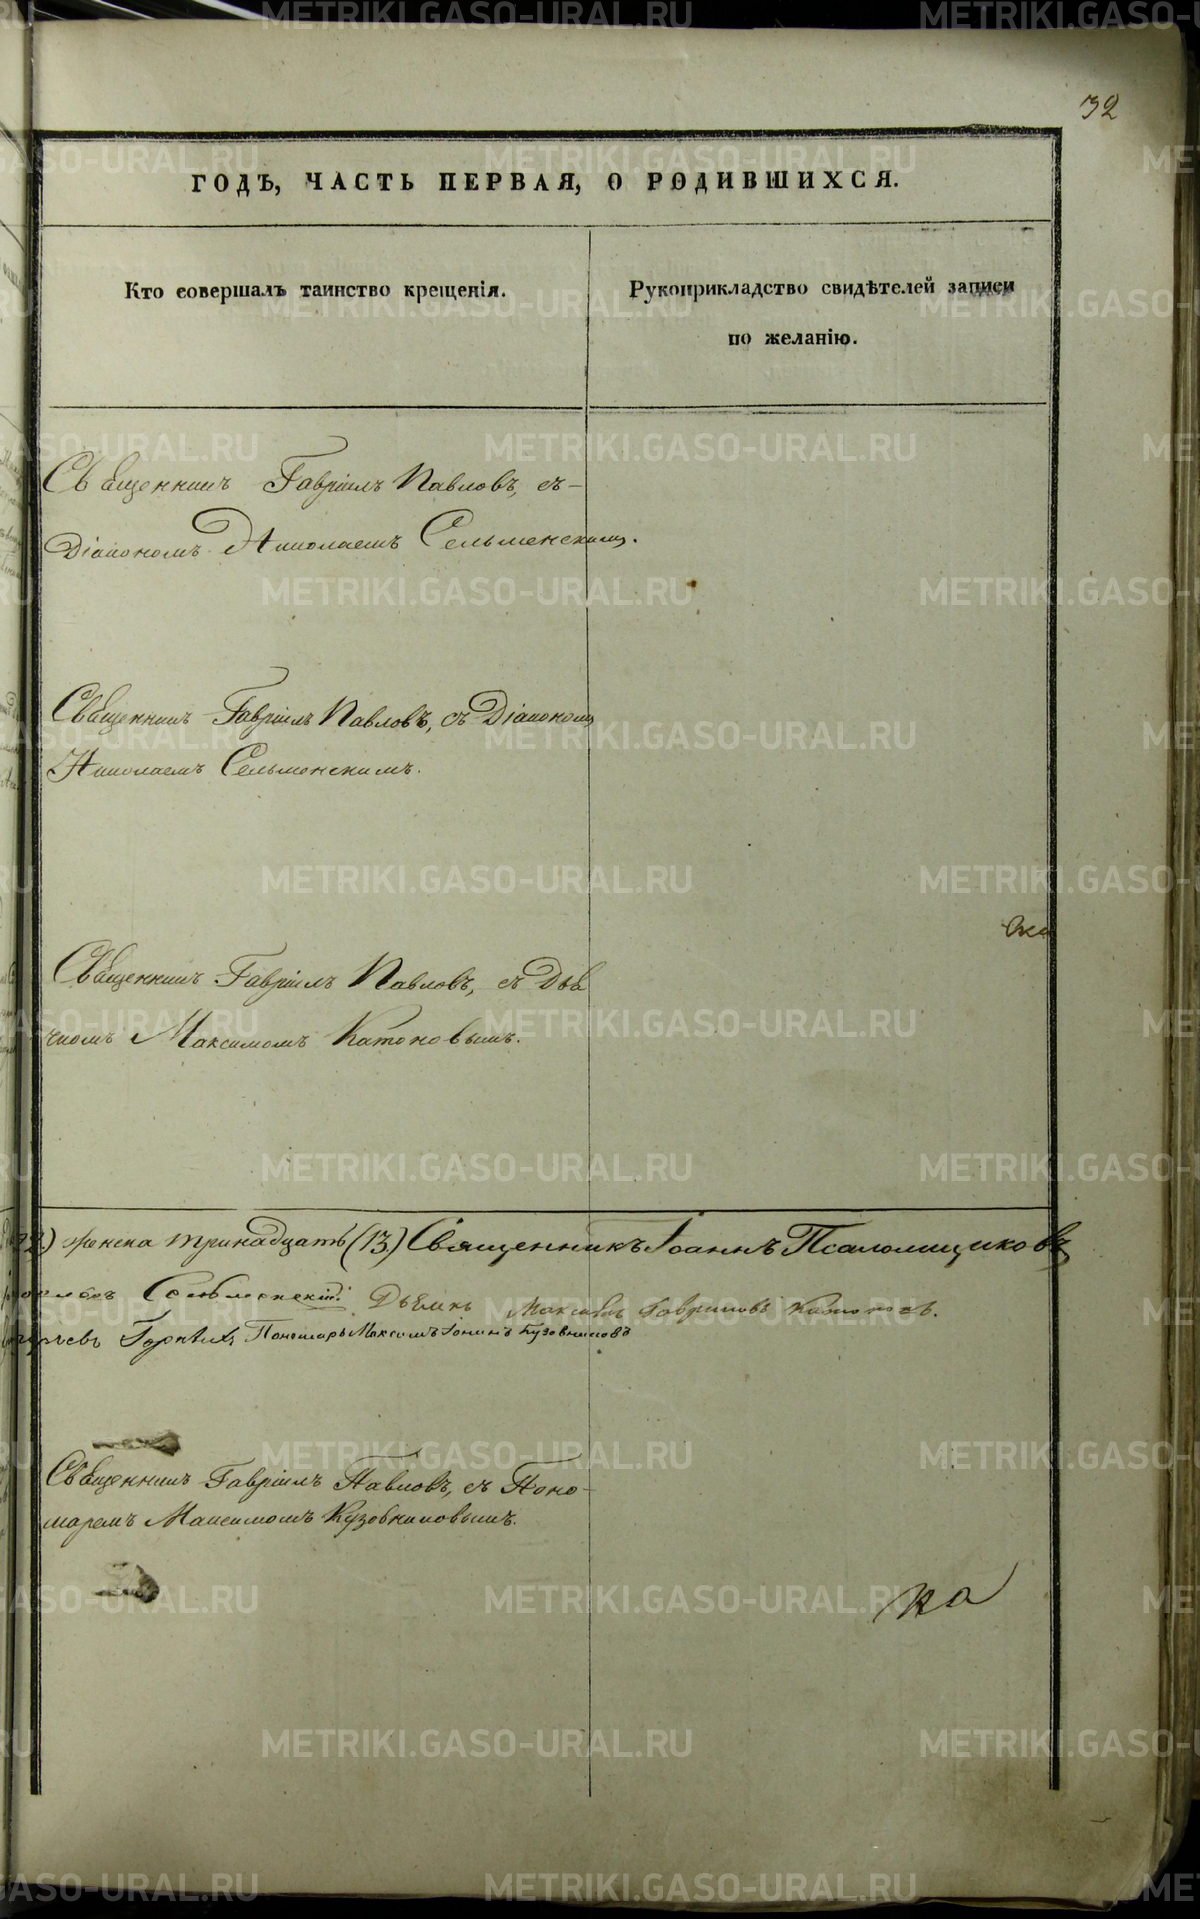 32
ГОДЪ, ЧАСТЬ ПЕРВАЯ, О РОДИВШИХСЯ.
Кто совершалъ таинство крещенія.
Рукоприкладство свидѣтелей записи
по желанію.
Священникъ Гавріилъ Павловъ, съ
Діакономъ Николаемъ Сельменскимъ.
Священникъ Гавріилъ Павловъ, съ Діакономъ
Николаемъ Сельменскимъ.
Священникъ Гавріилъ Павловъ, съ Дья
чкомъ Максимомъ Катоновымъ.
женска тринадцать (13) Священникъ Іоаннъ Псаломщиковъ
Дьячекъ Максимъ Гавриловъ Катоновъ.
Пономарь Максимъ Іонинъ Кузовниковъ
Священникъ Гавріилъ Павловъ, съ Поно-
маремъ Максимомъ Кузовниковымъ.
на
METRIKI.GASO-URAL.RU